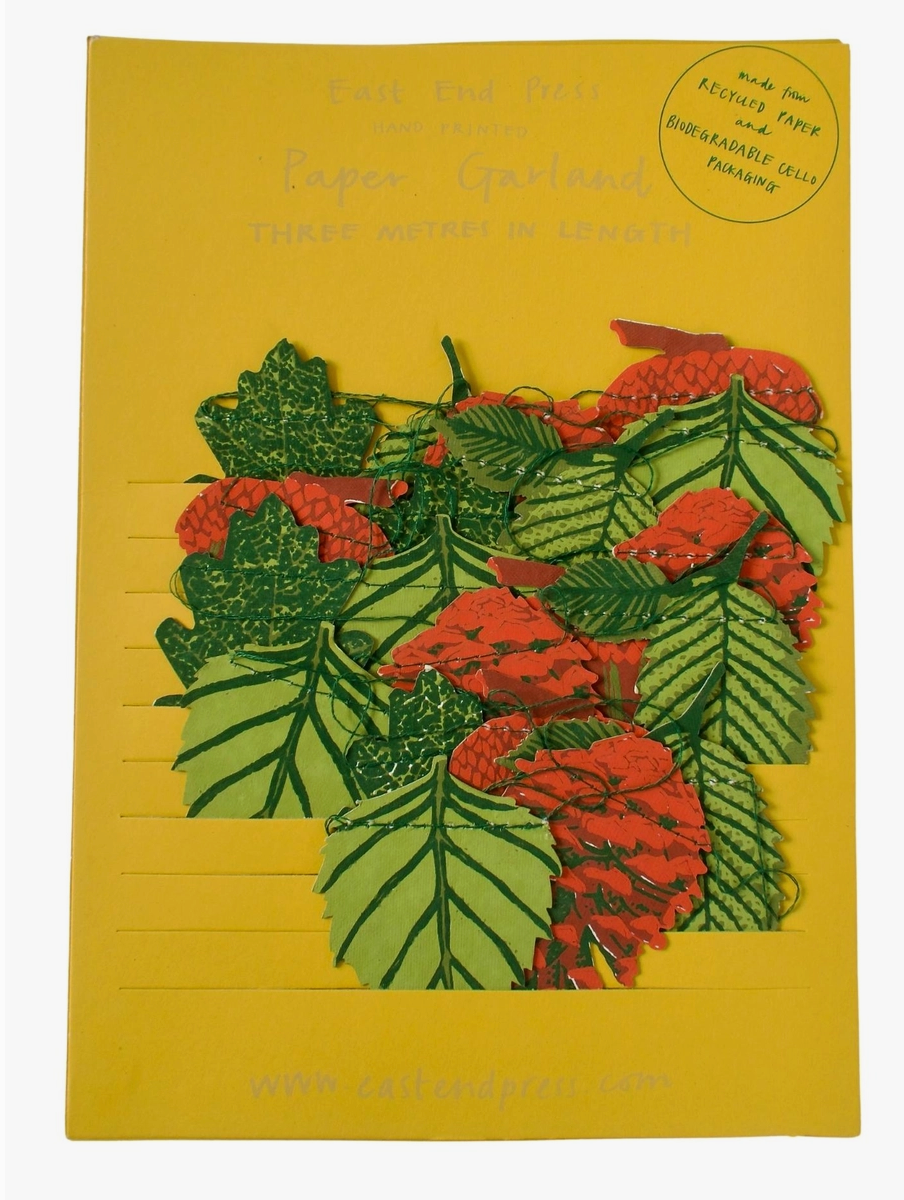 East End Press
HAND PRINTED
Paper Garland
THREE METRES IN LENGTH
made from
RECYCLED PAPER
and
BIODEGRADABLE CELLO
PACKAGING
www.eastendpress.com